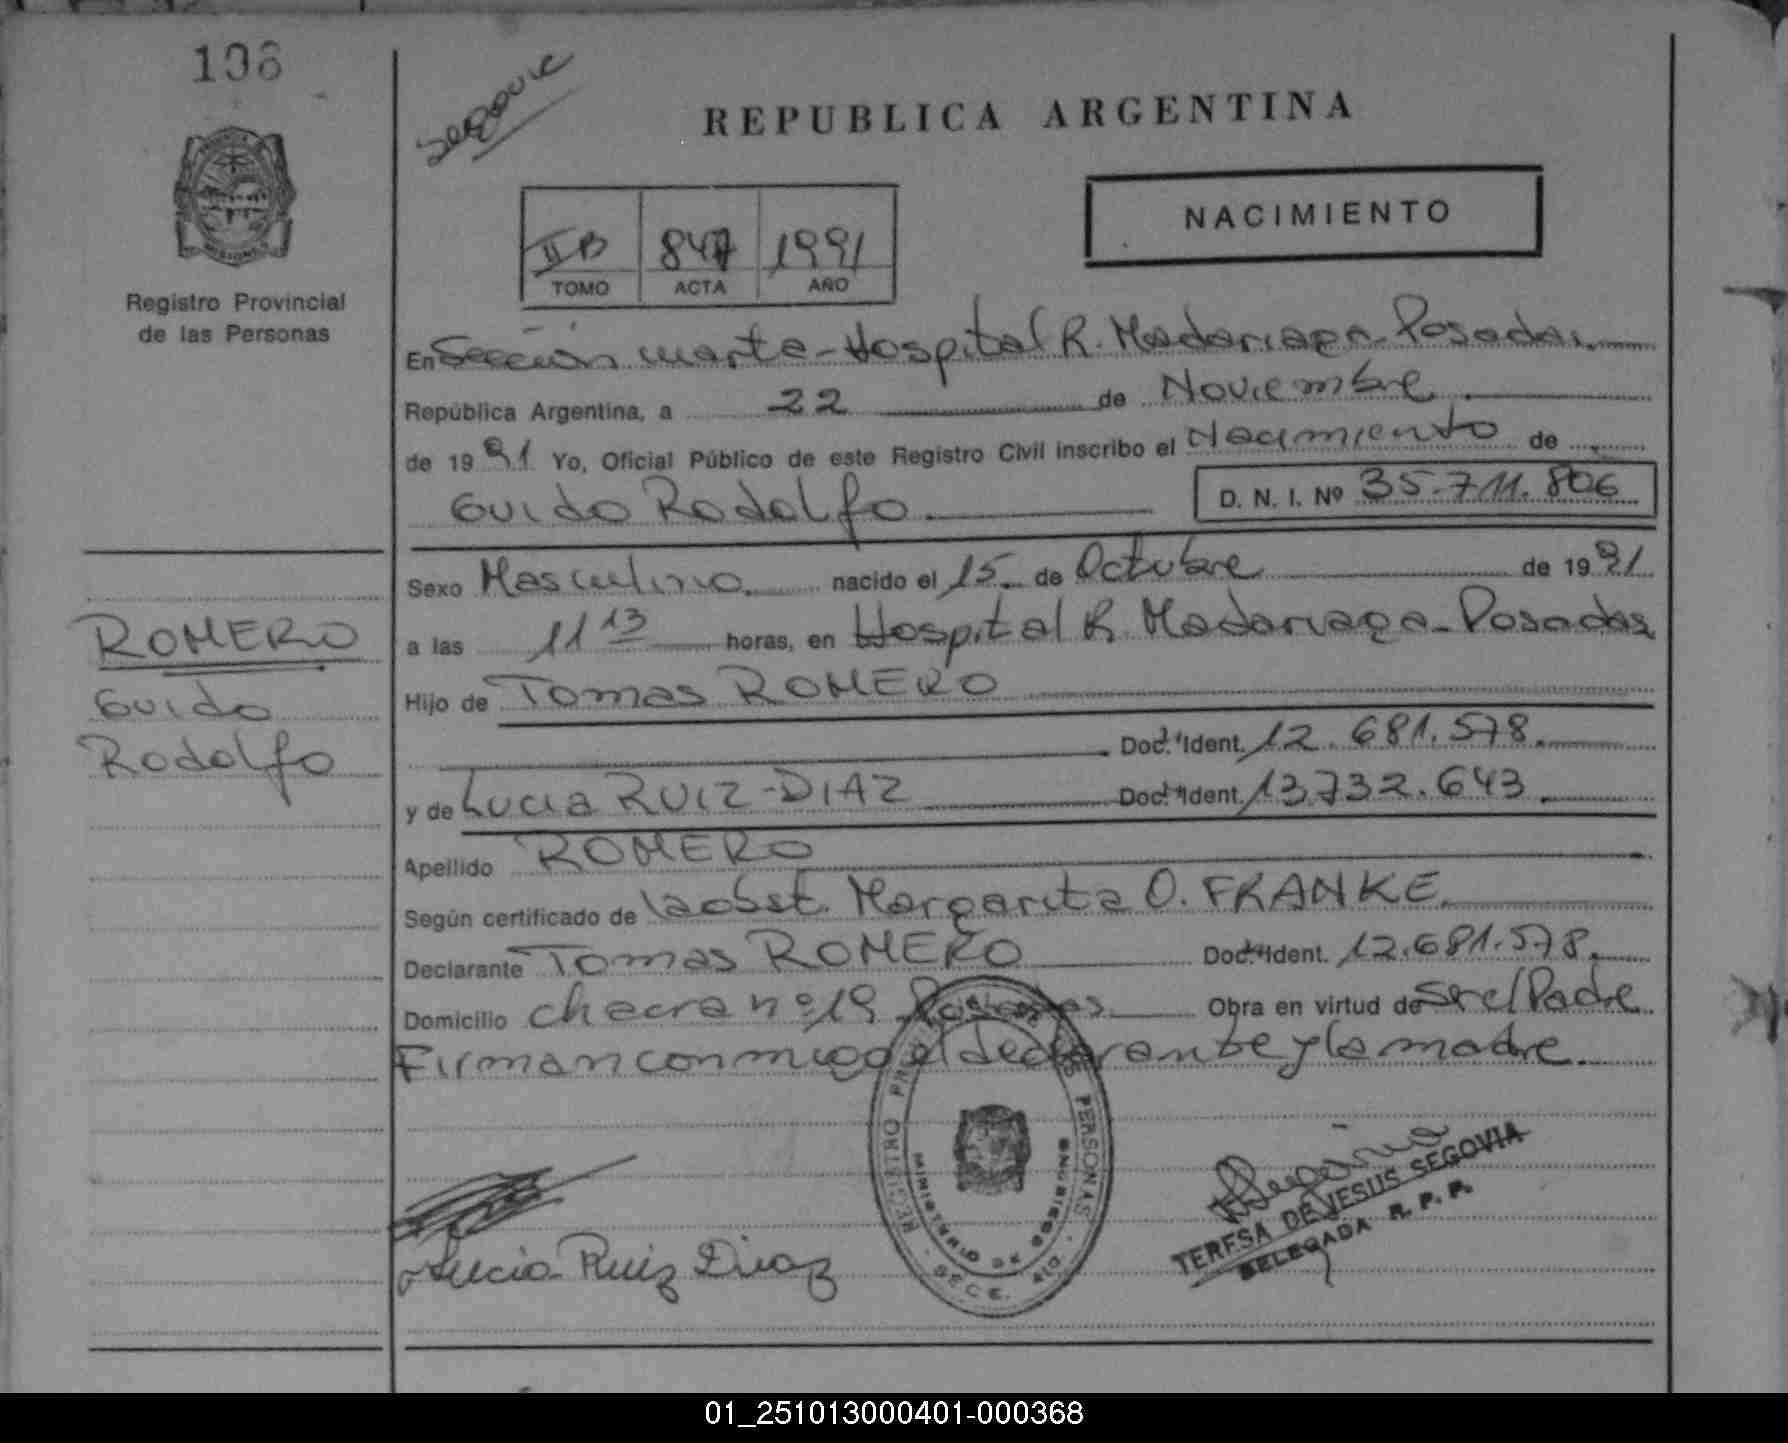 106
Segovia
REPUBLICA ARGENTINA
NACIMIENTO
IIB 847 1991
TOMO ACTA AÑO
Registro Provincial
de las Personas
En Sección cuarta - Hospital R. Madariaga - Posadas
República Argentina, a 22 de Noviembre
de 1991 Yo, Oficial Público de este Registro Civil inscribo el Nacimiento de
Guido Rodolfo D. N. I. Nº 35.711.806
Sexo Masculino nacido el 15 de Octubre de 1991
a las 11 13 horas, en Hospital R. Madariaga - Posadas
ROMERO
Guido
Rodolfo
Hijo de Tomas ROMERO
Doc. Ident. 12.681.578
y de Lucia RUIZ-DIAZ Doc. Ident. 13.732.643
Apellido ROMERO
Según certificado de la obst. Margarita O. FRANKE
Declarante Tomas ROMERO Doc. Ident. 12.681.578
Domicilio chacra nº 19 Posadas Obra en virtud de ser el Padre
Firman conmigo el declarante y la madre.
Lucia Ruiz Diaz
REGISTRO PERSONAS
TERESA DE JESUS SEGOVIA
DELEGADA R. P. P.
01_251013000401-000368